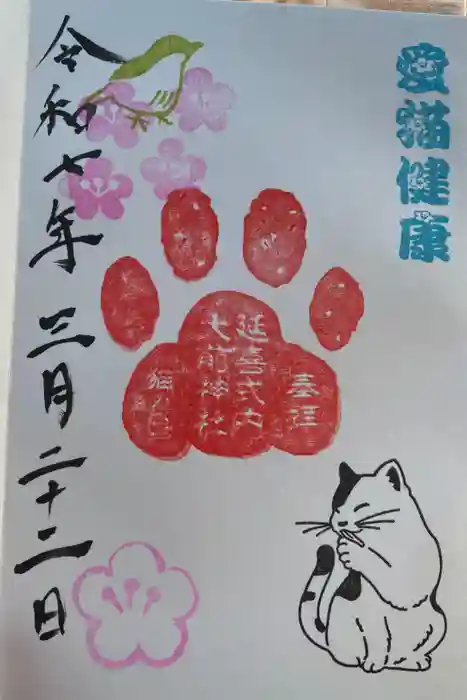 愛猫健康
奉拝
延喜式内
大前神社
猫の日
令和七年 三月二十二日